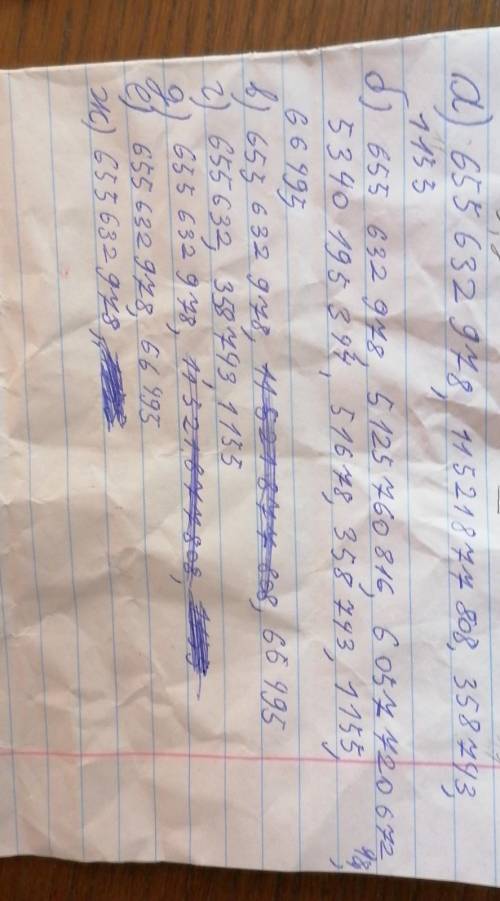 а) 655 632 978, 11521877 808, 358 793,
1155
б) 655 632 978, 5125760 816, 6 057 720 672,
5340 195 894, 51678, 358 793, 1155,
66 495
в) 655 632 978, 11 521 877 808, 66 495
г) 655 632, 358793, 1155
д) 655 632 978, 11 521 877 808,
е) 655 632 978, 66 495
ж) 655 632 978,